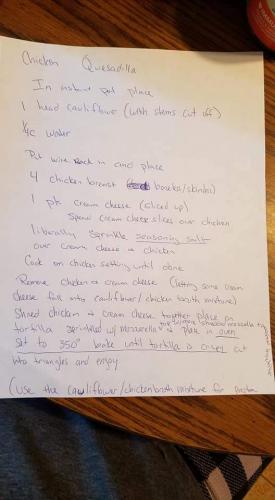 Chicken Quesadilla
In instant pot place
1 head cauliflower (with stems cut off)
1/4c water
Put wire rack in and place
4 chicken breast (boneles/skinles)
1 pk cream cheese (sliced up)
Spread cream cheese slices over chicken
liberally sprinkle seasoning salt
over cream cheese + chicken
Cook on chicken setting until done
Remove chicken + cream cheese (letting some cream
cheese fall into cauliflower/chicken broth mixture)
Shred chicken + cream cheese together place on
tortilla sprinkled w/ mozzarella + place in oven
set to 350° bake until tortilla is crispy cut
into triangles and enjoy
(use the cauliflower/chicken broth mixture for